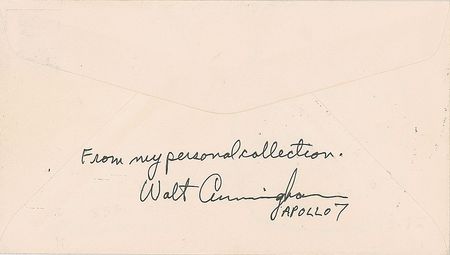 From my personal collection.
Walt Cunningham
APOLLO 7